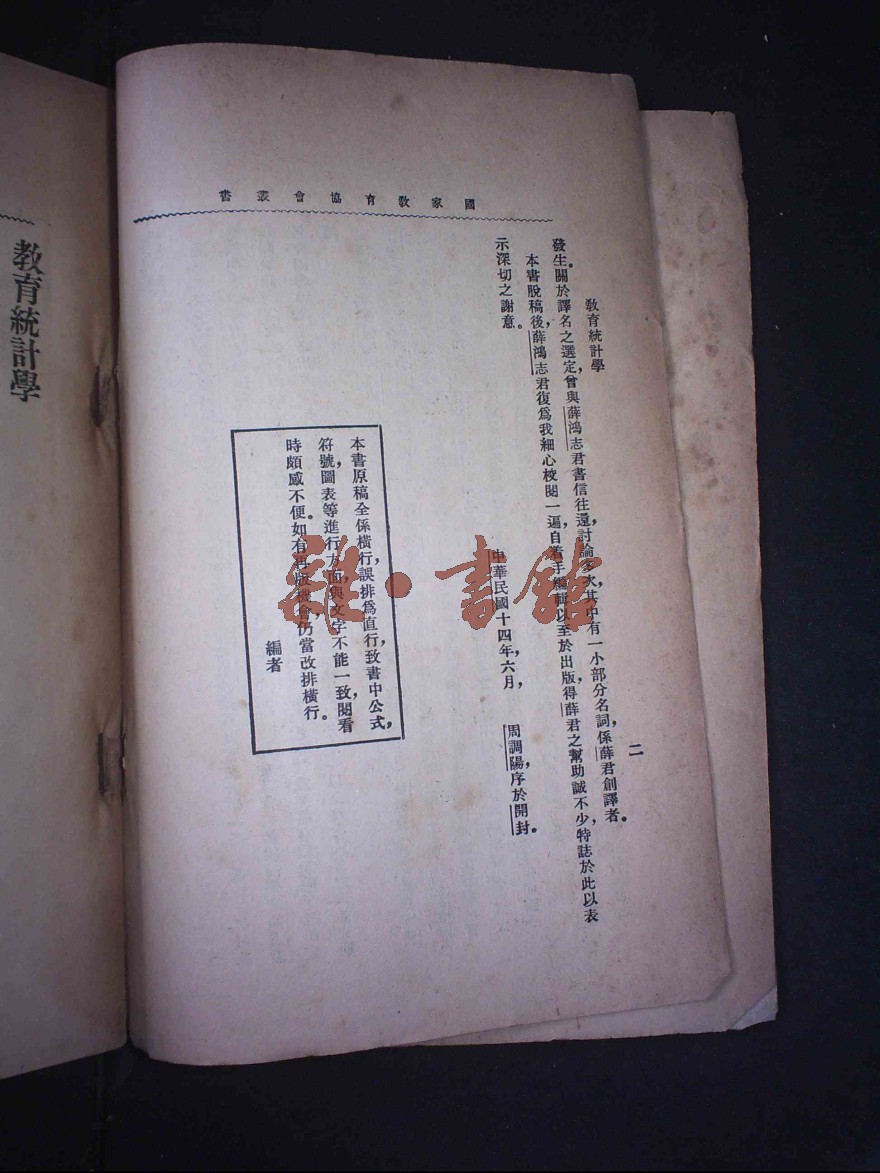 國家教育協會叢書
教育統計學
二
發生。關於譯名之選定,曾與薛鴻志君書信往還,討論多次,其中有一小部分名詞,係薛君創譯者。
本書脫稿後,薛鴻志君復為我細心校閱一遍,自着手編輯以至於出版,得薛君之幫助誠不少,特誌於此以表
示深切之謝意。
中華民國十四年,六月,周調陽,序於開封。
本書原稿全係橫行,誤排為直行,致書中公式,
符號,圖表等進行方面,與文字不能一致,閱看
時頗感不便。如有再版機會,仍當改排橫行。
編者
教育統計學
雜·書館